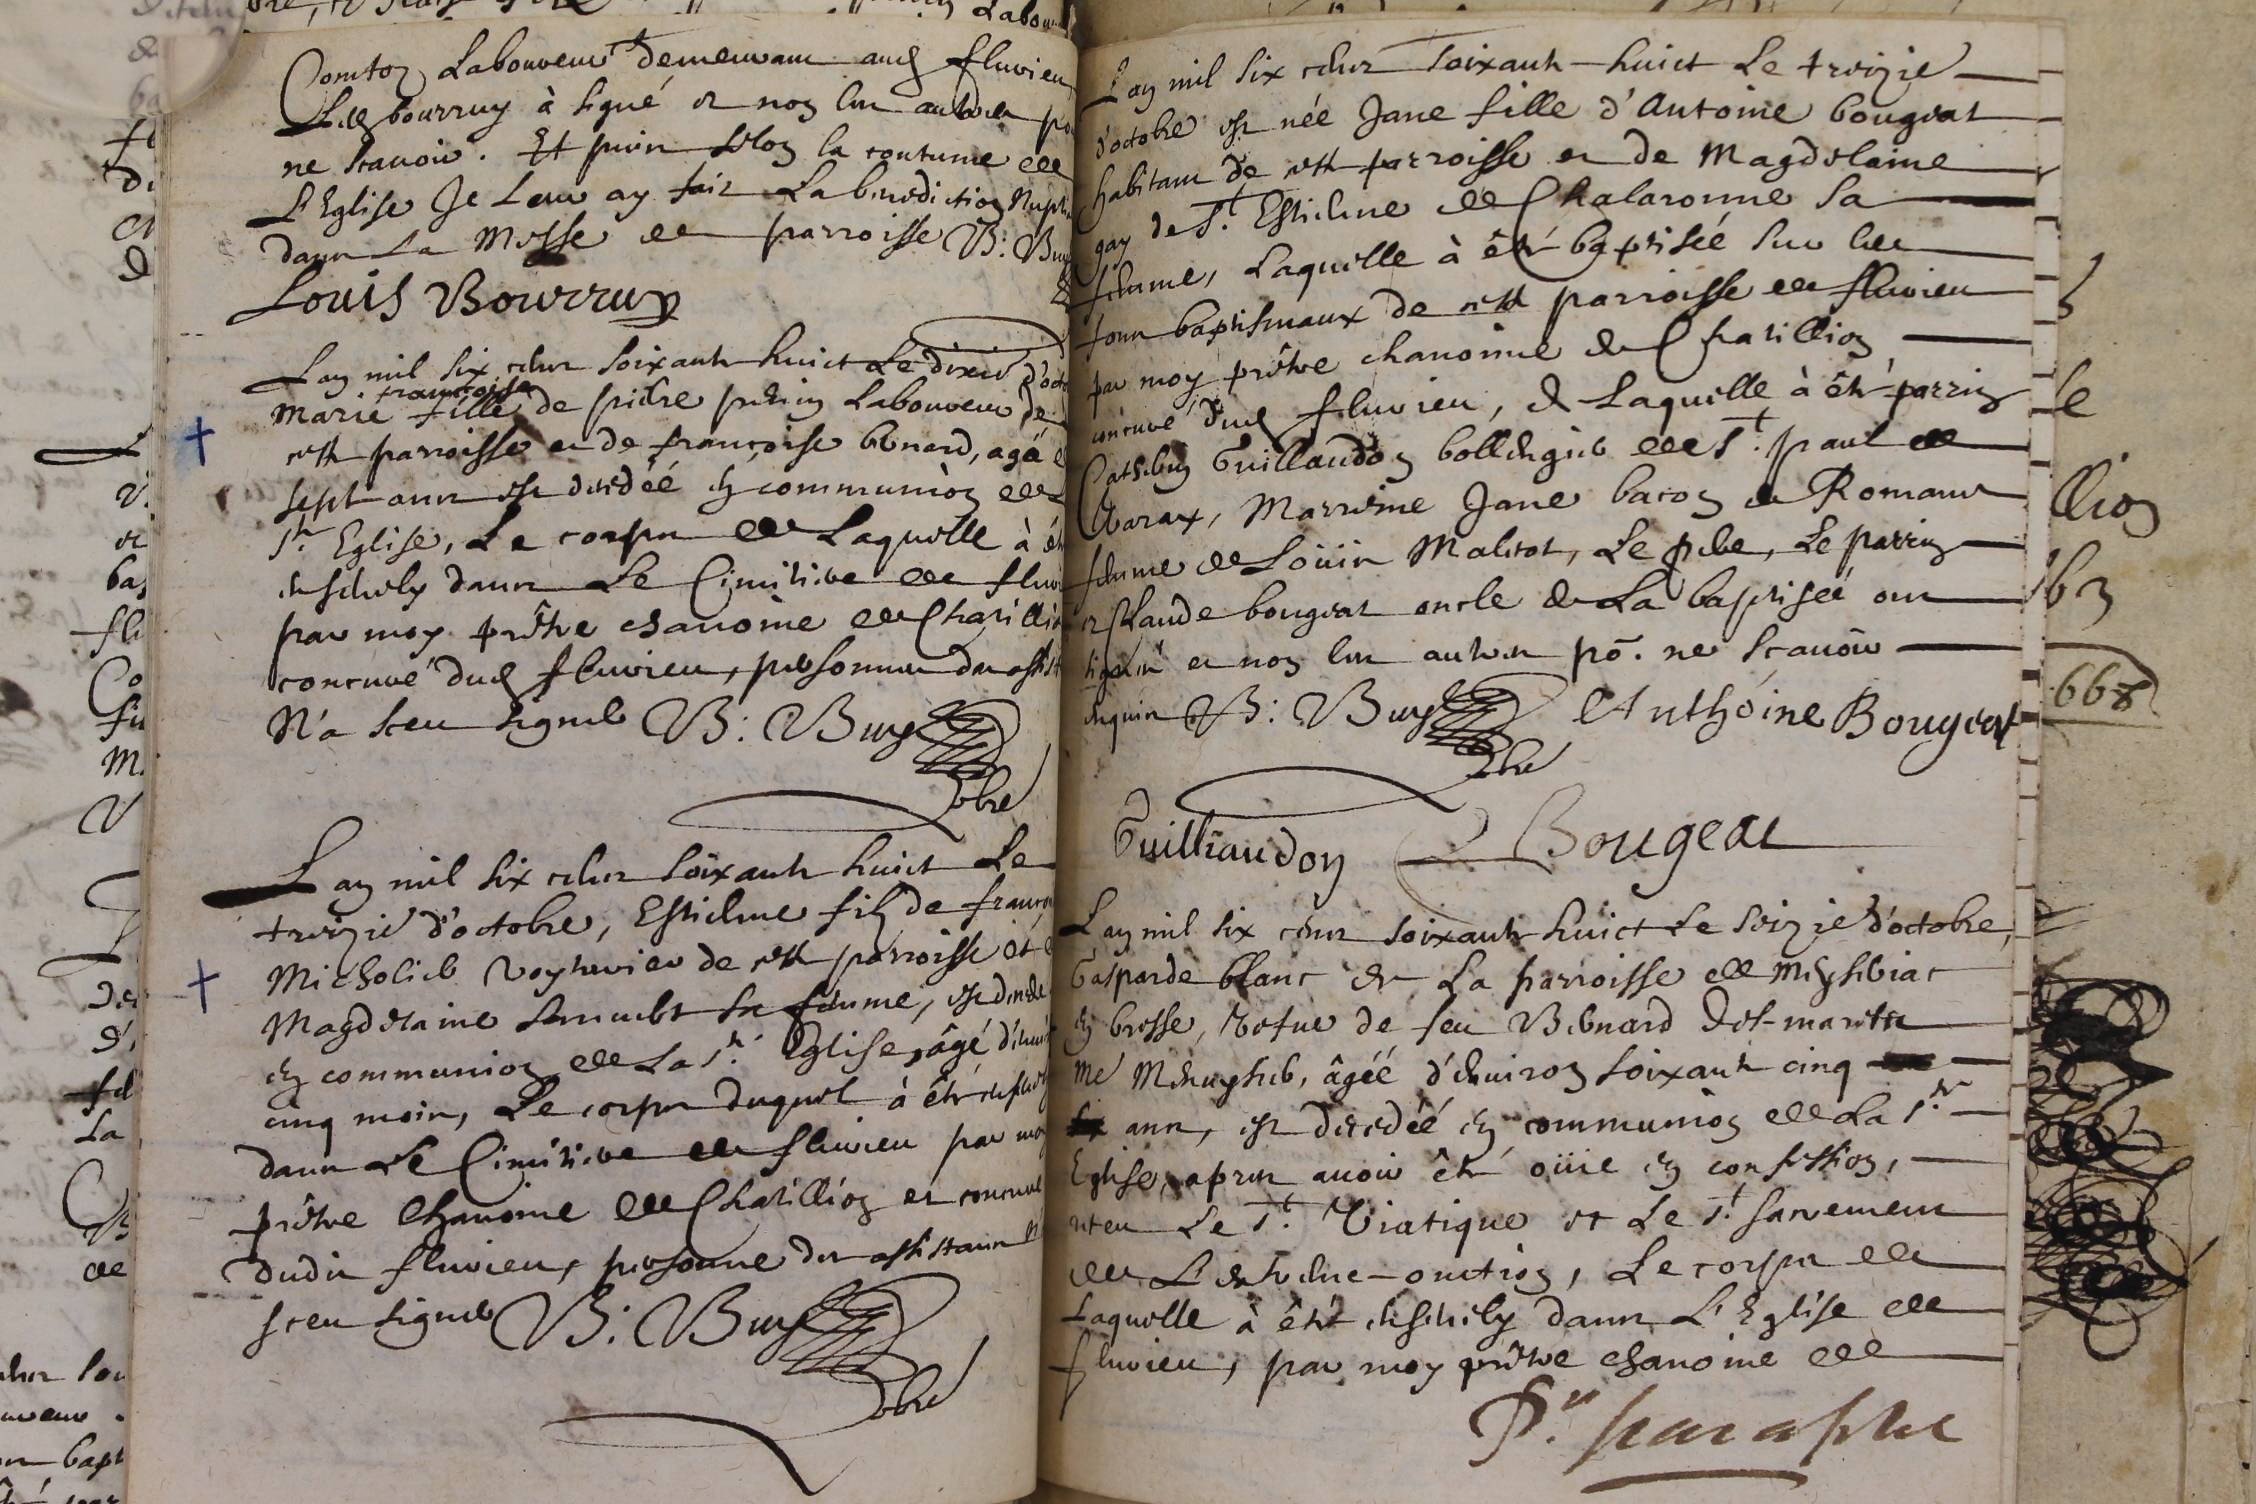 Comtoz Laboureur demeurant aud fluvieu
Led bourruy à signé et non les autres po
ne scavoir. Et puis selon la coutume de
L'Eglise Je Leur ay fait La benediction Nuptia
dans La Messe de parroisse B: Buy
Louis Bourruy
L'an mil six cens soixante huict Le dixie d'octo
françoise
Marie fille de pierre perrin Laboureur de
cette parroisse et de françoise benard, agée
sept ans est decedéé en communion de
ste Eglise, Le corps de Laquelle à été
ensevely dans Le Cimitiere de fluvi
par moy prêtre chanoine de Chatillio
concuré dud fluvieu, personne des assist
N'a sceu signer B: Buy
pbre
L'an mil six cens soixante huict Le
treizie d'octobre, Estienne filz de franço
Micholier voyturier de cette parroisse et
Magdelaine sa femme, est decedé
en communion de La ste Eglise, âgé d'envir
cinq mois, Le corps duquel à été ensevely
dans Le Cimitiere de fluvieu par moy
prêtre Chanoine de Chatillion et concuré
dudit fluvieu, personne des assistans
sceu signer B: Buy
pbre
L'an mil six cens soixante huict Le treizie
d'octobre est néé Jane fille d'Antoine bougeat
habitant de cette parroisse et de Magdelaine
gay de St. Estienne de Chalaronne sa
femme, Laquelle à été baptiséé sur les
fons baptismaux de cette parroisse de fluvieu
par moy prêtre chanoine de Chatillion
concuré dud fluvieu, de Laquelle à été parrin
Cathelin Guillaudon bollengier de St. paul de
Varax, Marreine Jane bacon de Romans
femme de Loüis Maliot, Le pere, Le parrin
et Claude bougeat oncle de La baptiséé ont
signé et non les autres pō. ne scavoir
enquis B: Buy Anthoine Bougeat
pbre
Guilliaudon C Bougeat
L'an mil six cens soixante huict Le seizie d'octobre,
Gasparde blanc de La parroisse de Meyseriat
en bresse, vefue de feu Bernard Des-martin
me Menuysier, âgéé d'environ soixante cinq
ans, est decedéé en communion de La ste
Eglise, apres avoir été oüie en confession,
receu Le St. Viatique et Le St. sacrement
de L'extreme-onction, Le corps de
Laquelle à été ensevely dans L'Eglise de
fluvieu, par moy prêtre chanoine de
Pr. paraphe
668